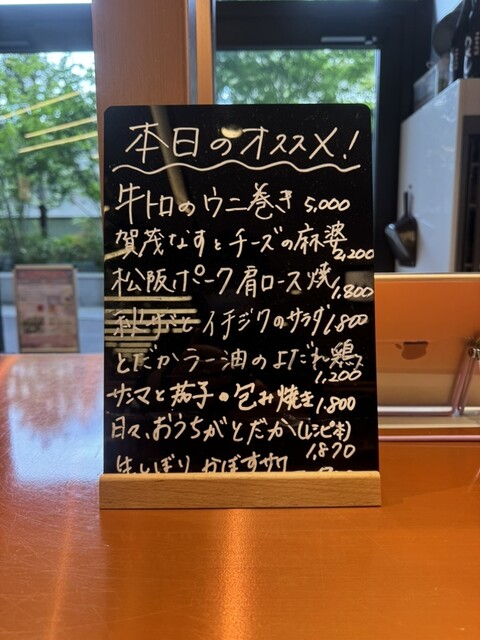 本日のオススメ!
牛トロのウニ巻き 5,000
賀茂なすとチーズの麻婆 2,200
松阪ポーク肩ロース焼 1,800
イチジクのサラダ 1,800
とだかラー油のよだれ鶏 1,200
サンマと茄子の包み焼き 1,800
日々、おうちがとだか(レシピ本) 1,870
生しぼりかぼすサワー